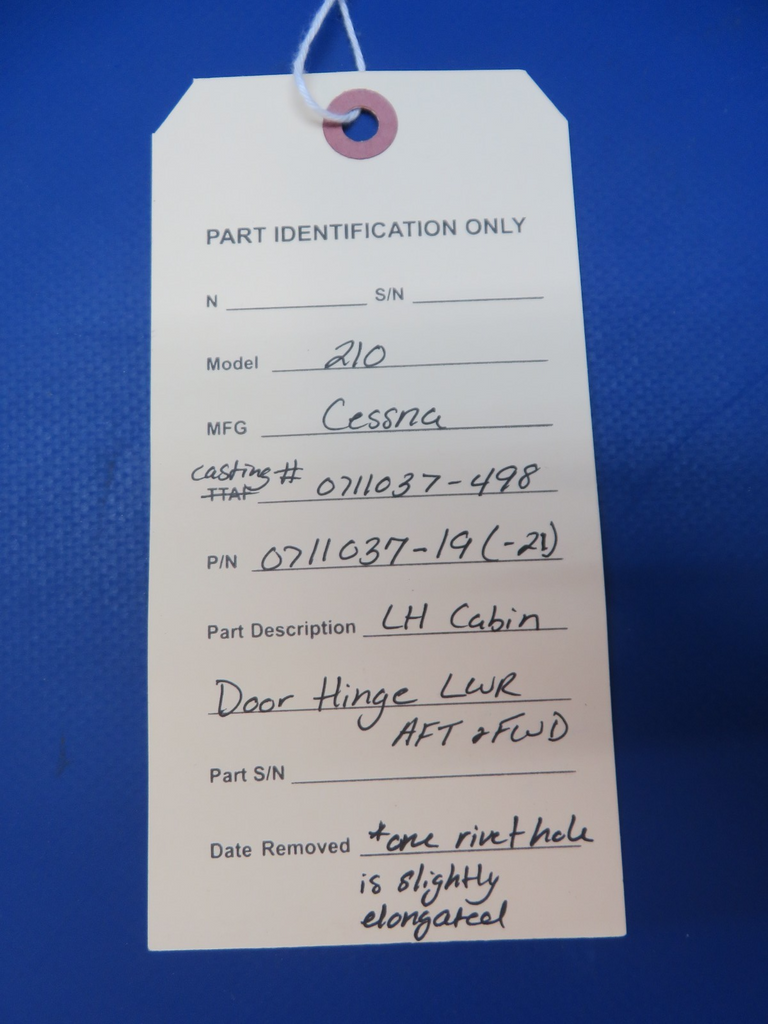 PART IDENTIFICATION ONLY
N S/N
Model 210
MFG Cessna
casting #
TTAF 0711037-498
P/N 0711037-19 (-21)
Part Description LH Cabin
Door Hinge LWR
AFT & FWD
Part S/N
Date Removed *one rivet hole
is slightly
elongated